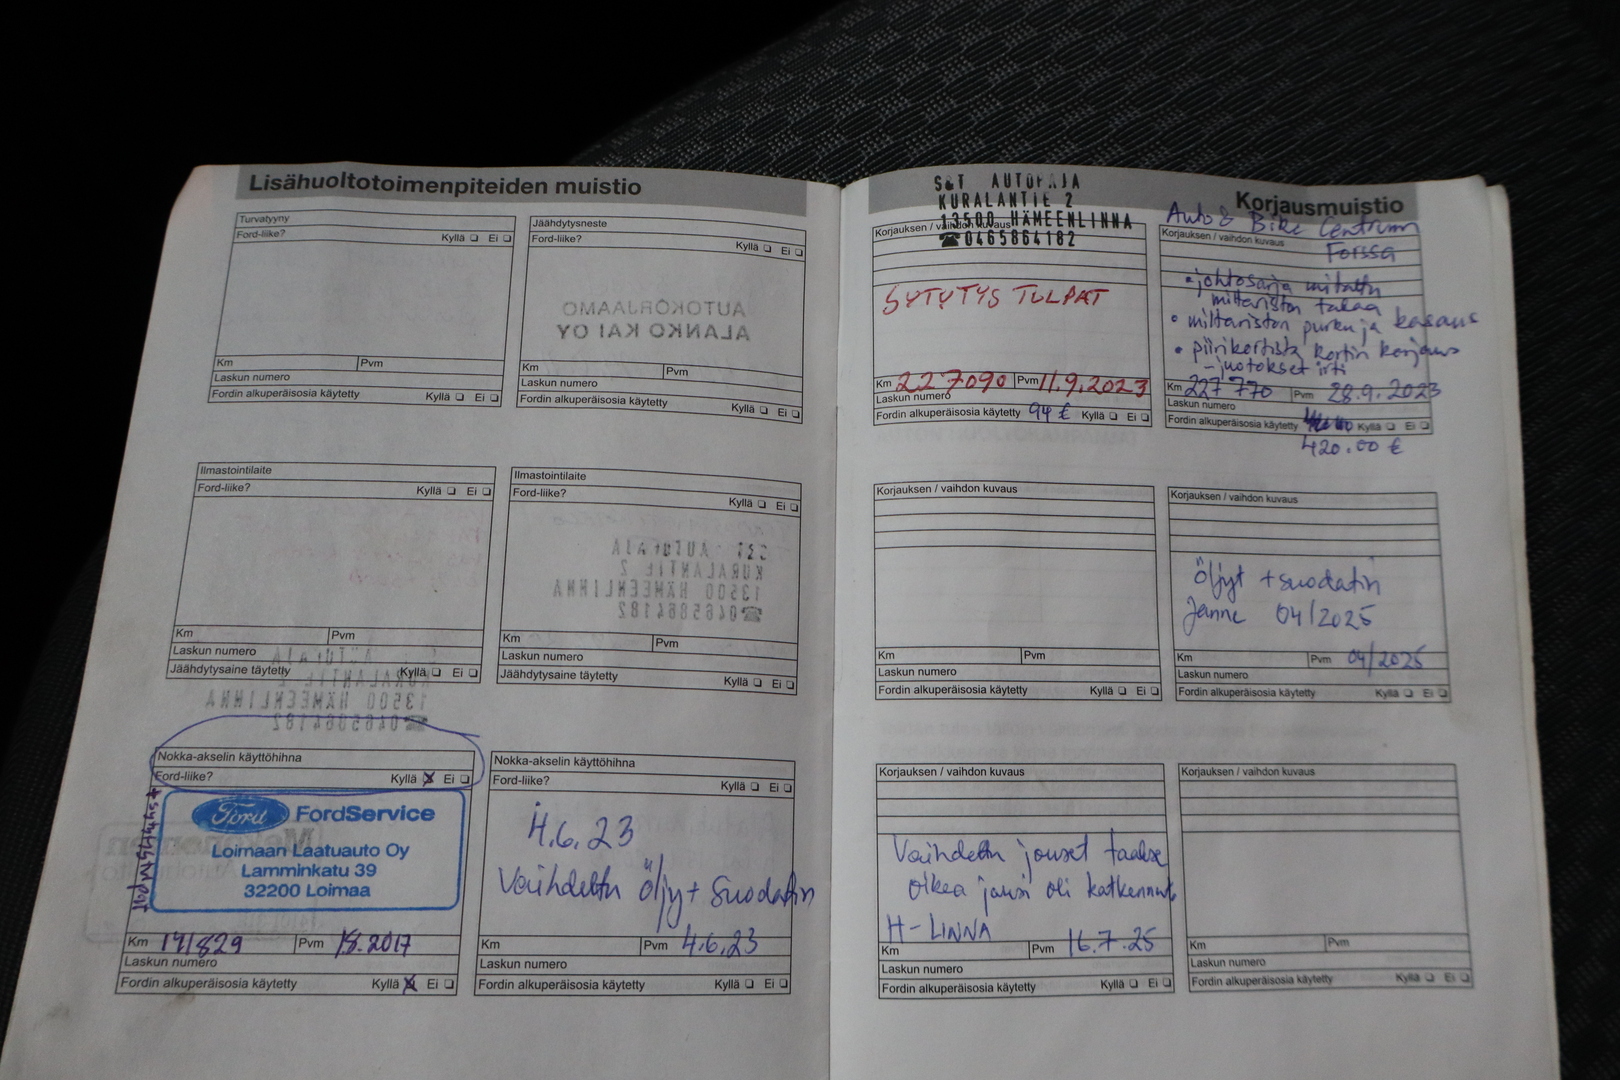 Lisähuoltotoimenpiteiden muistio
Turvatyyny
Ford-liike? Kyllä ❏ Ei ❏
Km Pvm
Laskun numero
Fordin alkuperäisosia käytetty Kyllä ❏ Ei ❏
Jäähdytysneste
Ford-liike? Kyllä ❏ Ei ❏
AUTOKORJAAMO
ALANKO KAI OY
Km Pvm
Laskun numero
Fordin alkuperäisosia käytetty Kyllä ❏ Ei ❏
Ilmastointilaite
Ford-liike? Kyllä ❏ Ei ❏
Km Pvm
Laskun numero
Jäähdytysaine täytetty Kyllä ❏ Ei ❏
13500 HÄMEENLINNA
0465864182
Ilmastointilaite
Ford-liike? Kyllä ❏ Ei ❏
S&T AUTOPAJA
KURALANTIE 2
13500 HÄMEENLINNA
☎0465864182
Km Pvm
Laskun numero
Jäähdytysaine täytetty Kyllä ❏ Ei ❏
Nokka-akselin käyttöhihna
Ford-liike? Kyllä ☒ Ei ❏
Ford FordService
Loimaan Laatuauto Oy
Lamminkatu 39
32200 Loimaa
Km 191829 Pvm 1.8.2017
Laskun numero
Fordin alkuperäisosia käytetty Kyllä ☒ Ei ❏
Nokka-akselin käyttöhihna
Ford-liike? Kyllä ❏ Ei ❏
4.6.23
Vaihdettu öljy + Suodatin
Km Pvm 4.6.23
Laskun numero
Fordin alkuperäisosia käytetty Kyllä ❏ Ei ❏
Korjausmuistio
S&T AUTOPAJA
KURALANTIE 2
13500 HÄMEENLINNA
☎0465864182
Korjauksen / vaihdon kuvaus
SYTYTYS TULPAT
Km 227090 Pvm 11.9.2023
Laskun numero
Fordin alkuperäisosia käytetty 94 € Kyllä ❏ Ei ❏
Auto & Bike Centrum
Forssa
Korjauksen / vaihdon kuvaus
• johtosarja mitattu
mittariston takaa
• mittariston purku ja kasaus
• piirikortista kortin korjaus
- juotokset irti
Km 227 770 Pvm 28.9.2023
Laskun numero
Fordin alkuperäisosia käytetty Kyllä ❏ Ei ❏
420.00 €
Korjauksen / vaihdon kuvaus
Km Pvm
Laskun numero
Fordin alkuperäisosia käytetty Kyllä ❏ Ei ❏
Korjauksen / vaihdon kuvaus
öljyt + suodatin
Janne 04/2025
Km Pvm 04/2025
Laskun numero
Fordin alkuperäisosia käytetty Kyllä ❏ Ei ❏
Korjauksen / vaihdon kuvaus
Vaihdettu jouset taakse
oikea jousi oli katkennut
H-LINNA
Km Pvm 16.7.25
Laskun numero
Fordin alkuperäisosia käytetty Kyllä ❏ Ei ❏
Korjauksen / vaihdon kuvaus
Km Pvm
Laskun numero
Fordin alkuperäisosia käytetty Kyllä ❏ Ei ❏